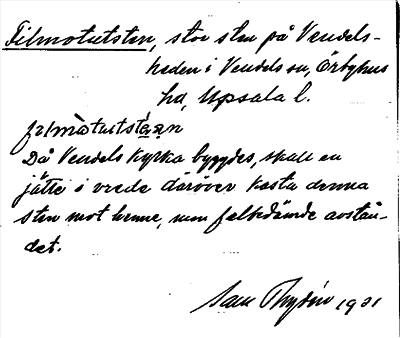 Filmotutsten, stor sten på Vendels-
heden i Vendels sn, Örbyhus
hd, Upsala l.
filmòtutstạạn
Då Vendels kyrka byggdes, skall en
jätte i vrede däröver kasta denna
sten mot henne, men felbedömde avstån-
det.
Sam Thydén 1931